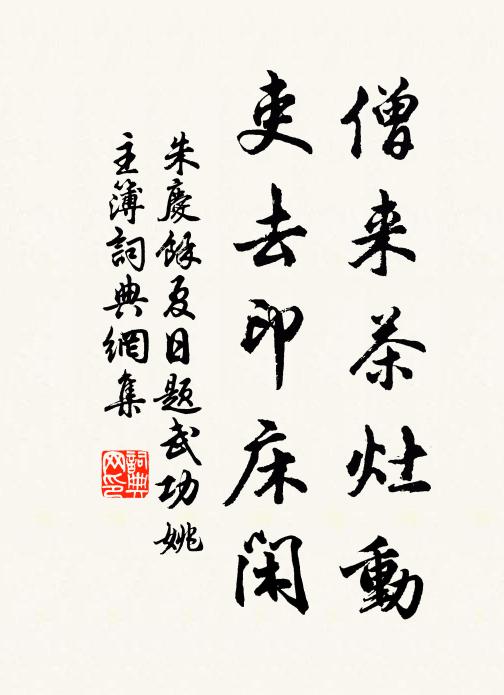 僧来茶灶動
吏去印床閑
朱慶餘夏日題武功姚
主簿詞典網集
詞典网印